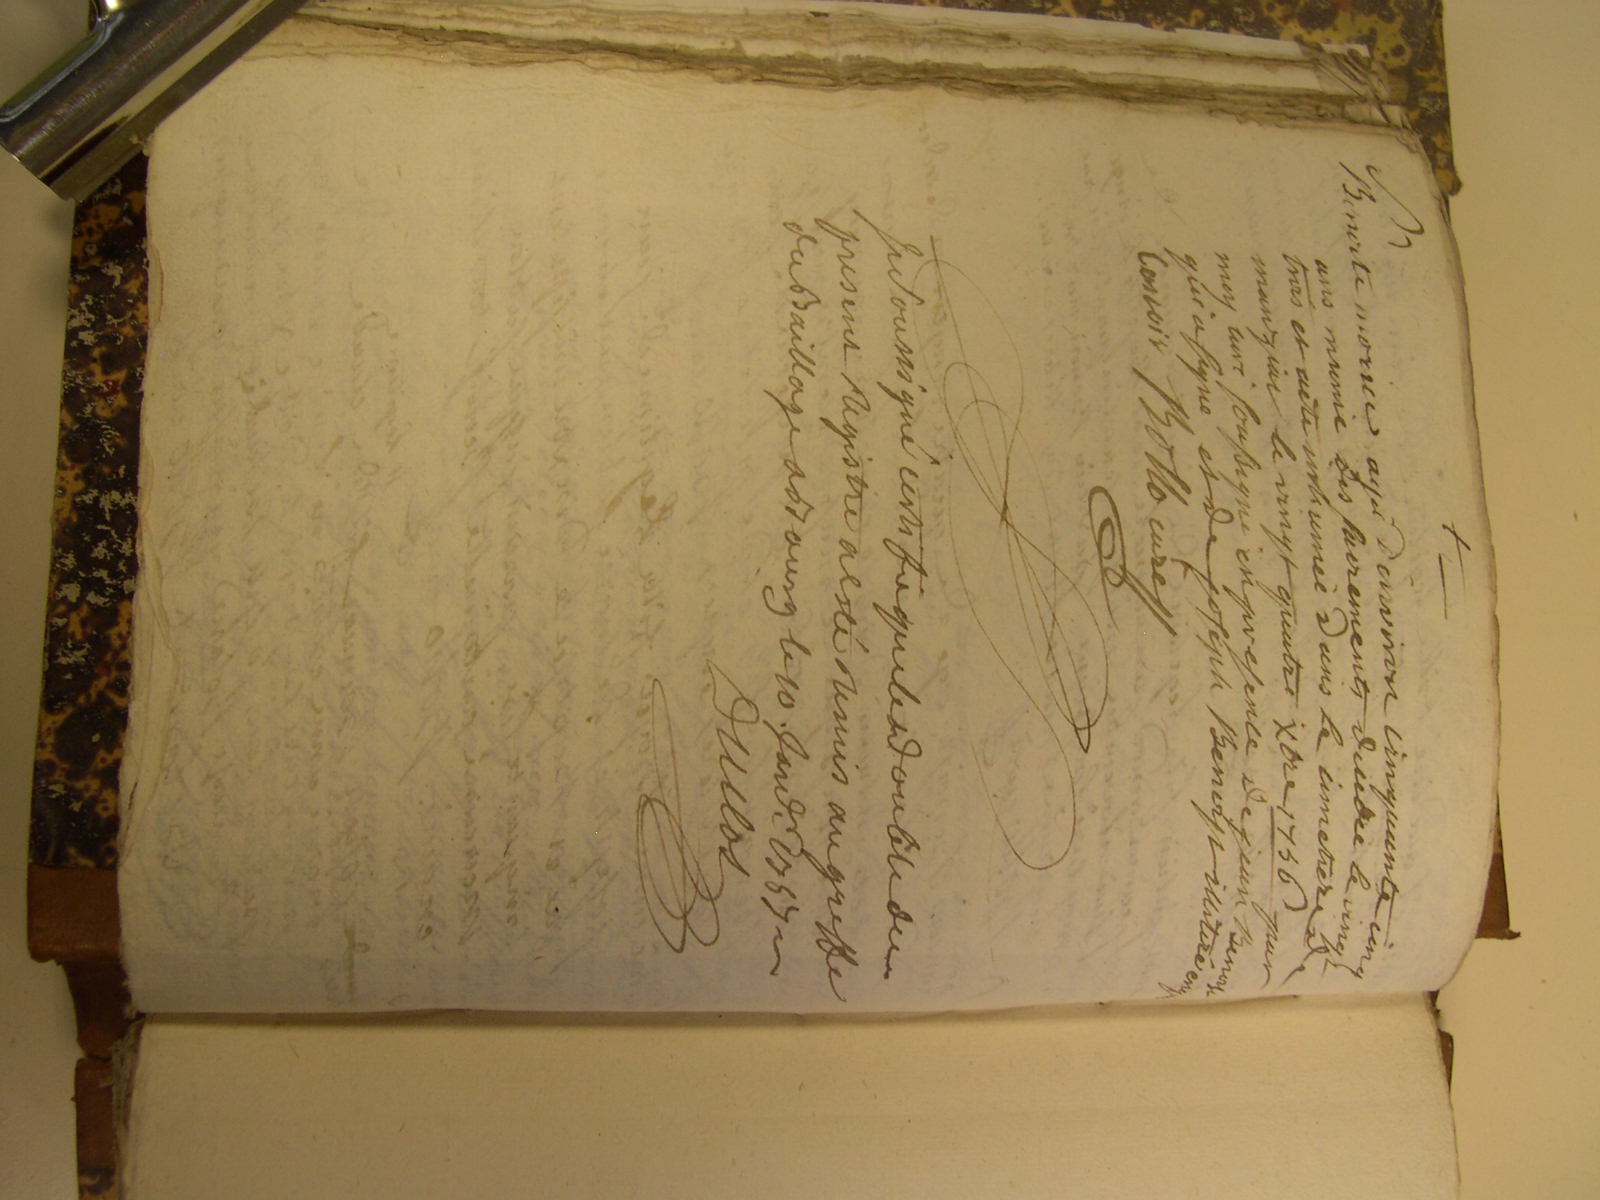 Benoite morice agé d'environ cinquante cinq
ans munie des sacrements le vingt
trois et a été inhumée dans le cimetiere de
le vingt quatre Xbre 1756 par
moy curé soussigné en presence de jean Benoist
qui a signé et de joseph Benoist illitteré enq
Bollo curé
Je soussigné certifie que le double du
present Registre a esté remis au greffe
du Bailliage de Bourg le 10. Janv. 1757
Duclos